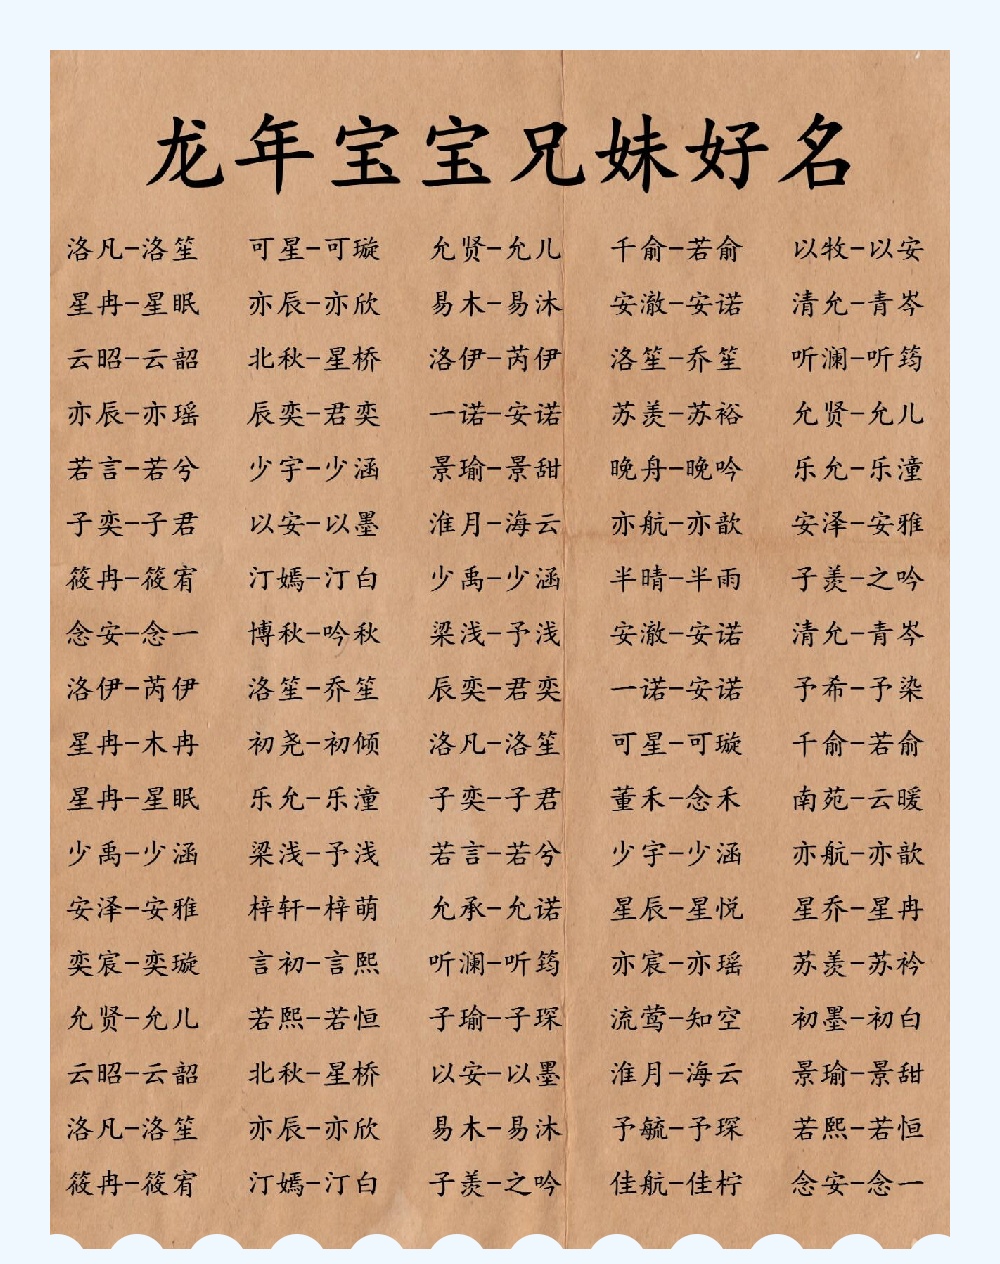 龙年宝宝兄妹好名
洛凡-洛笙 可星-可璇 允贤-允儿 千俞-若俞 以牧-以安
星冉-星眠 亦辰-亦欣 易木-易沐 安澈-安诺 清允-青岑
云昭-云韶 北秋-星桥 洛伊-芮伊 洛笙-乔笙 听澜-听筠
亦辰-亦瑶 辰奕-君奕 一诺-安诺 苏羡-苏裕 允贤-允儿
若言-若兮 少宇-少涵 景瑜-景甜 晚舟-晚吟 乐允-乐潼
子奕-子君 以安-以墨 淮月-海云 亦航-亦歆 安泽-安雅
筱冉-筱宥 汀嫣-汀白 少禹-少涵 半晴-半雨 子羡-之吟
念安-念一 博秋-吟秋 梁浅-予浅 安澈-安诺 清允-青岑
洛伊-芮伊 洛笙-乔笙 辰奕-君奕 一诺-安诺 予希-予染
星冉-木冉 初尧-初倾 洛凡-洛笙 可星-可璇 千俞-若俞
星冉-星眠 乐允-乐潼 子奕-子君 董禾-念禾 南苑-云暖
少禹-少涵 梁浅-予浅 若言-若兮 少宇-少涵 亦航-亦歆
安泽-安雅 梓轩-梓萌 允承-允诺 星辰-星悦 星乔-星冉
奕宸-奕璇 言初-言熙 听澜-听筠 亦宸-亦瑶 苏羡-苏衿
允贤-允儿 若熙-若恒 子瑜-子琛 流莺-知空 初墨-初白
云昭-云韶 北秋-星桥 以安-以墨 淮月-海云 景瑜-景甜
洛凡-洛笙 亦辰-亦欣 易木-易沐 予毓-予琛 若熙-若恒
筱冉-筱宥 汀嫣-汀白 子羡-之吟 佳航-佳柠 念安-念一